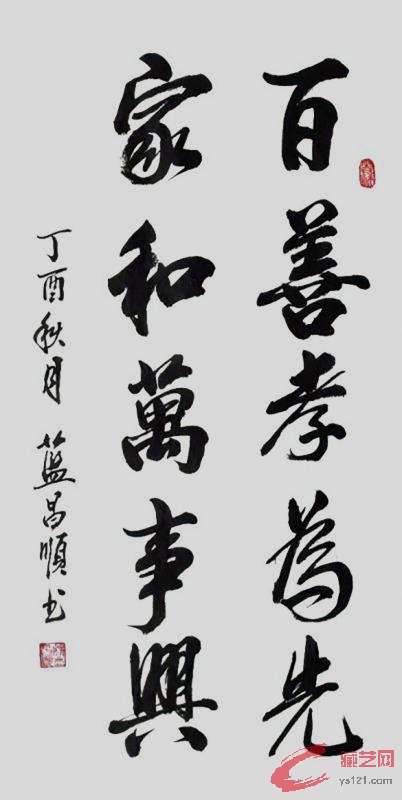 百善孝為先
家和萬事興
丁酉秋月 藍昌順书
藏艺网
ys121.com